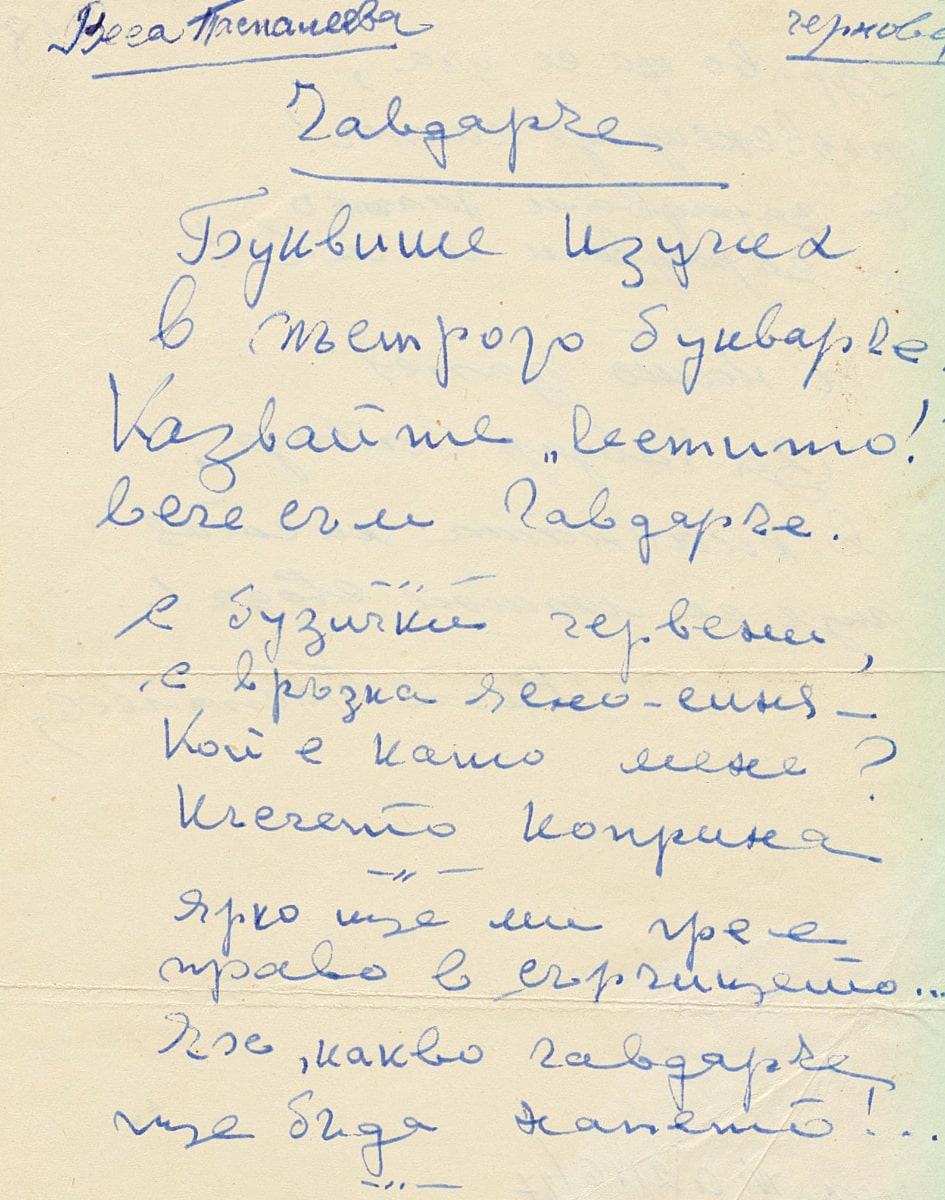 Веса Паспалеева
чернова
Чавдарче
Буквите изучих
в пъстрото букварче,
Казвайте „Честито!
вече съм Чавдарче.
—"—
с бузички червени,
с връзка ясно-синя —
Кой е като мене?
Късчето коприна
—"—
ярко ще ми грее
право в сърчицето...
Ех, какво чавдарче
ще бъда напето!...
—"—